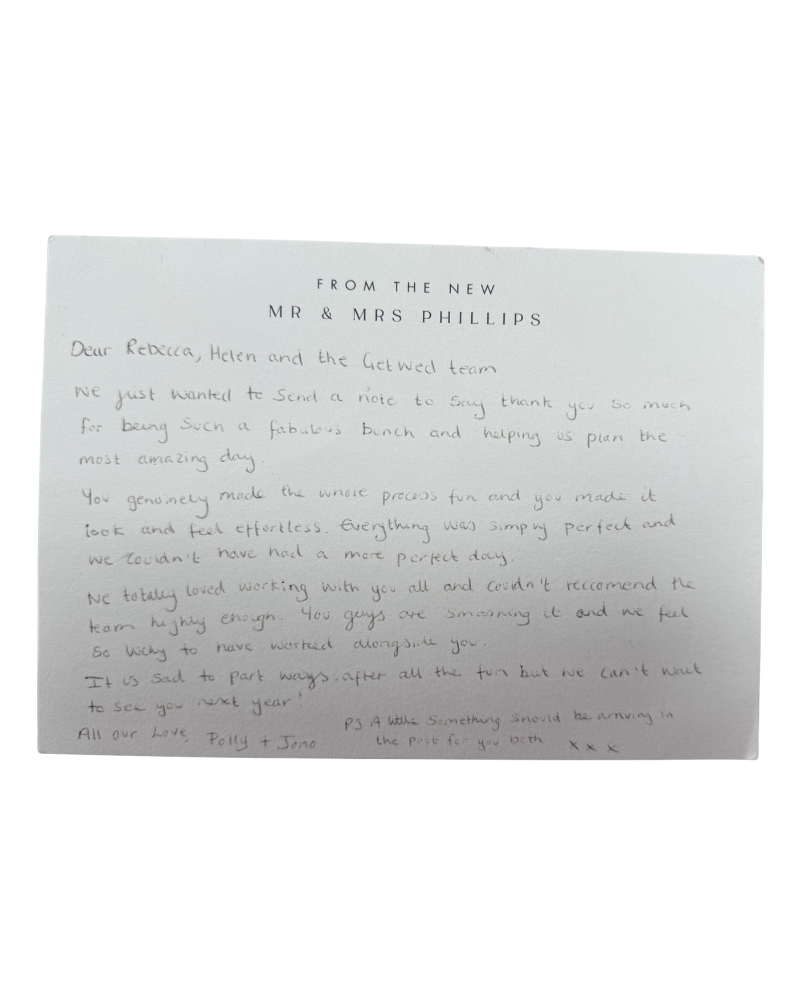 FROM THE NEW
MR & MRS PHILLIPS
Dear Rebecca, Helen and the Get Wed team
We just wanted to send a note to say thank you so much
for being such a fabulous bunch and helping us plan the
most amazing day.
You genuinely made the whole process fun and you made it
look and feel effortless. Everything was simply perfect and
we couldn't have had a more perfect day.
We totally loved working with you all and couldn't reccomend the
team highly enough. You guys are smashing it and we feel
so lucky to have worked alongside you.
It is sad to part ways after all the fun but we can't wait
to see you next year!
All our Love Polly + Jono
P.S A little something should be arriving in
the post for you both x x x